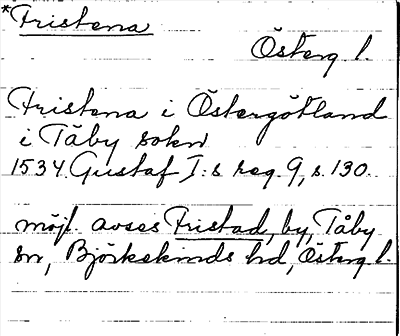 *Fristena
Österg l.
Fristena i Östergötland
i Tåby sokn
1534 Gustaf I:s reg. 9, s. 130.
möjl. avses Fristad, by, Tåby
sn, Björkekinds hd, Österg l.